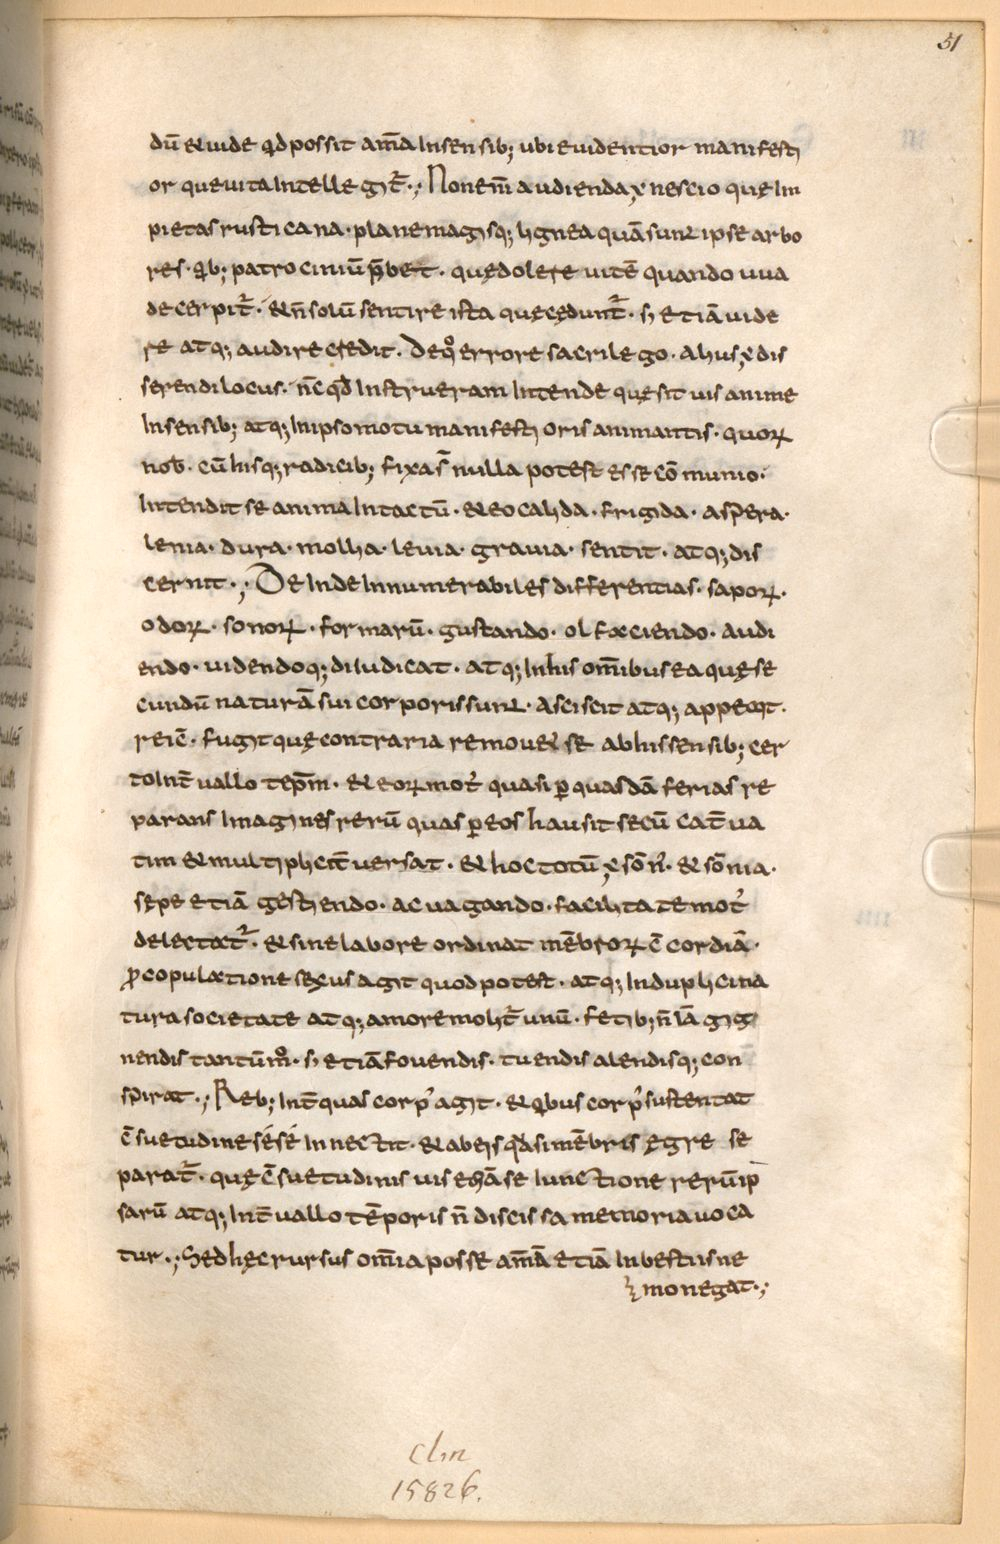 51
dū &uide qd possit am̄a Insensib; ubi euidentior manifesti
or que uita Intellegit̄·; Non em̄ audienda ē nescio quę Im
pietas rusticana· plane magisq; lignea quā sunt ipse arbo
res· qb; patrociniū p̄bet· quę dolere uitē quando uua
decerpit̄· &n̄ solū sentire ista quę cędunt̄· s; etiā uide
re atq; audire credit· De q̊ errore sacrilego· alius ē dis
serendi locus· n̄c qd Instrueram Intende quę sit uis anime
Insensib; atq; In ipso motu manifestioris animantis· quoꝝ
nob̄· cū hisq; radicib; fixa s̄ nulla potest esse cōmunio·
Intendit se anima Intactū· &eo calida· frigida· aspera·
lenia· dura· mollia· leuia· grauia· sentit· atq; dis
cernit·; De Inde Innumerabiles differentias· sapoꝝ·
odoꝝ· sonoꝝ· formarū· gustando· olfaciendo· audi
endo· uidendoq; diIudicat· atq; In his om̄ibus ea quę se
cundū naturā sui corporis sunt· asciscit atq; appetit·
reic̄· fugit quę contraria remou& se ab his sensib; cer
to Int̄uallo tep̄m· &eoꝝ mot; quasi ꝑ quasdā ferias re
parans Imagines rerū quas ꝑ eos hausit secū cat̄ua
tim &multiplicit̄ uersat· &hoc totū ē sōn;· &sōnia·
sępe etiā gestiendo· ac uagando· facilitate mot;
delectat̄· &sine labore ordinat mēbroꝝ c̄cordiā·
ꝓ copulatione sexus agit quod potest· atq; In duplici na
tura societate atq; amore molit̄ unū· fetib; n̄ Iā gig
nendis tantūm̊· s; etiā fouendis· tuendis alendisq; con
spirat·; Reb; Int̄ quas corp; agit· &qbus corp; sustentat
c̄suetudine sésé Innectit· &ab eis qasi mēbris ęgre se
parat̄· quę c̄suetudinis uis etiā seIunctione rerū ip
sarū atq; Int̄uallo tēporis n̄ discissa memoria uoca
tur·; Sed hęc rursus om̄ia posse am̄ā etiā In bestiis ne
mo negat·;
Clm
15826.